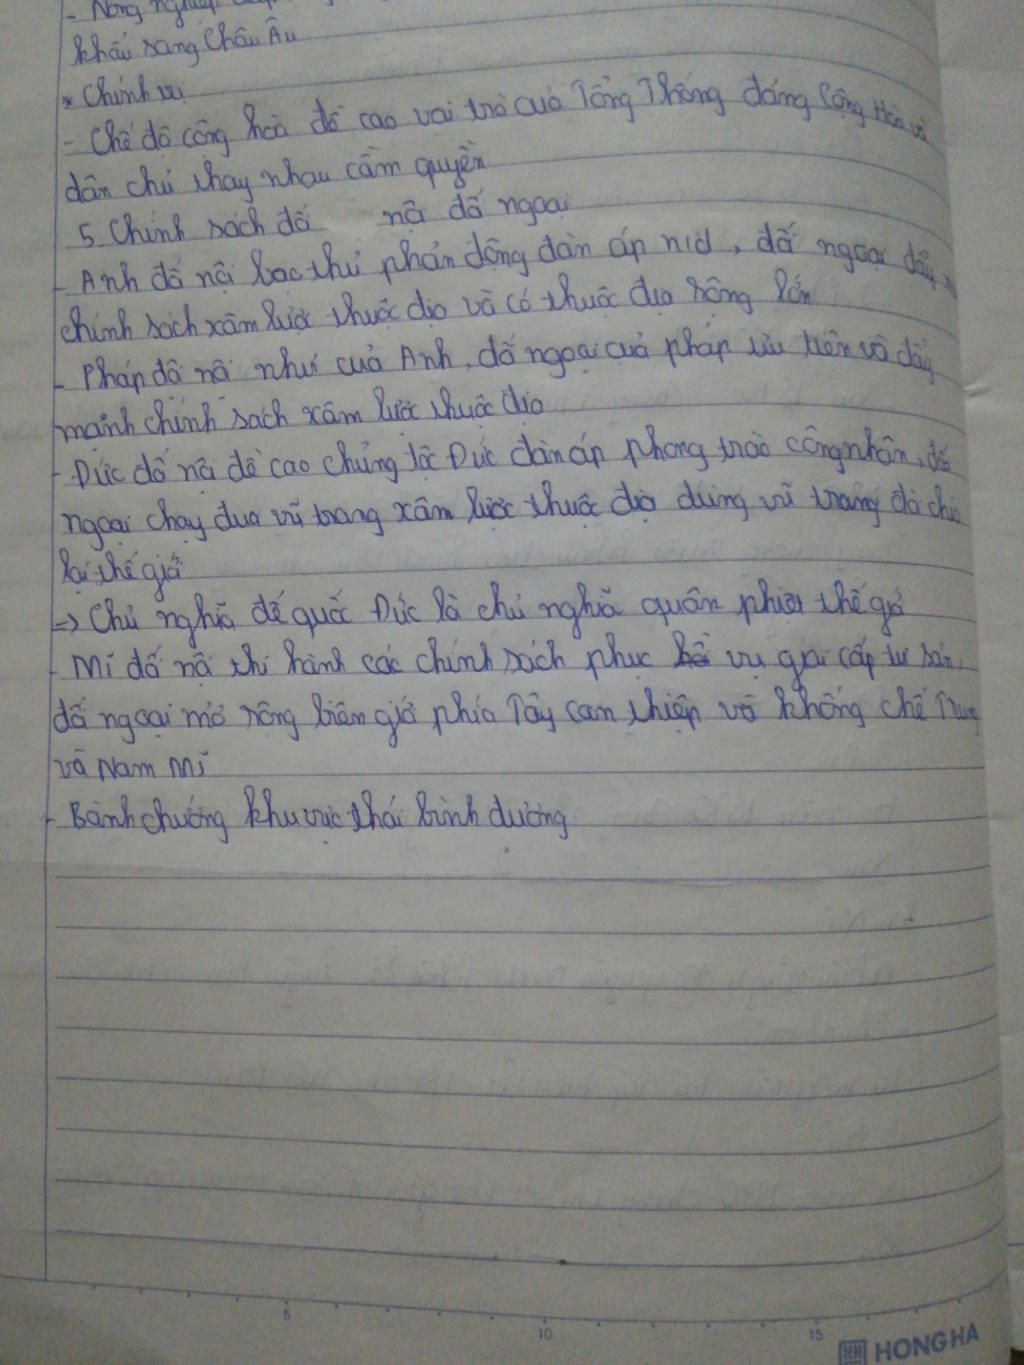 - Nông nghiệp
khẩu sang Châu Âu
* Chính trị
- Chế độ cộng hoà đề cao vai trò của Tổng Thống đảng Cộng Hoà và
dân chủ thay nhau cầm quyền
5. Chính sách đối nội đố ngoại
- Anh đố nội bao thủ phản động đàn áp nid, đố ngoại đẩy
chính sách xâm lược thuộc địa và có thuộc địa rộng lớn
- Pháp đố nội như của Anh, đố ngoại của pháp ưu tiên và đẩy
mạnh chính sách xâm lược thuộc địa
- Đức đố nội đề cao chủng tộc Đức đàn áp phong trào công nhân, đố
ngoại chạy đua vũ trang xâm lược thuộc địa dùng vũ trang đò chia
lại thế giớ
=> Chủ nghĩa đế quố Đức là chủ nghĩa quân phiệt thế giớ
- Mĩ đố nội thi hành các chính sách phục vụ giai cấp tư sản,
đố ngoại mở rộng biên giớ phía Tây can thiệp và khống chế Trung
và Nam Mĩ
- Bành chướng khu vực thái bình dương
5 10 15
HH HONG HA